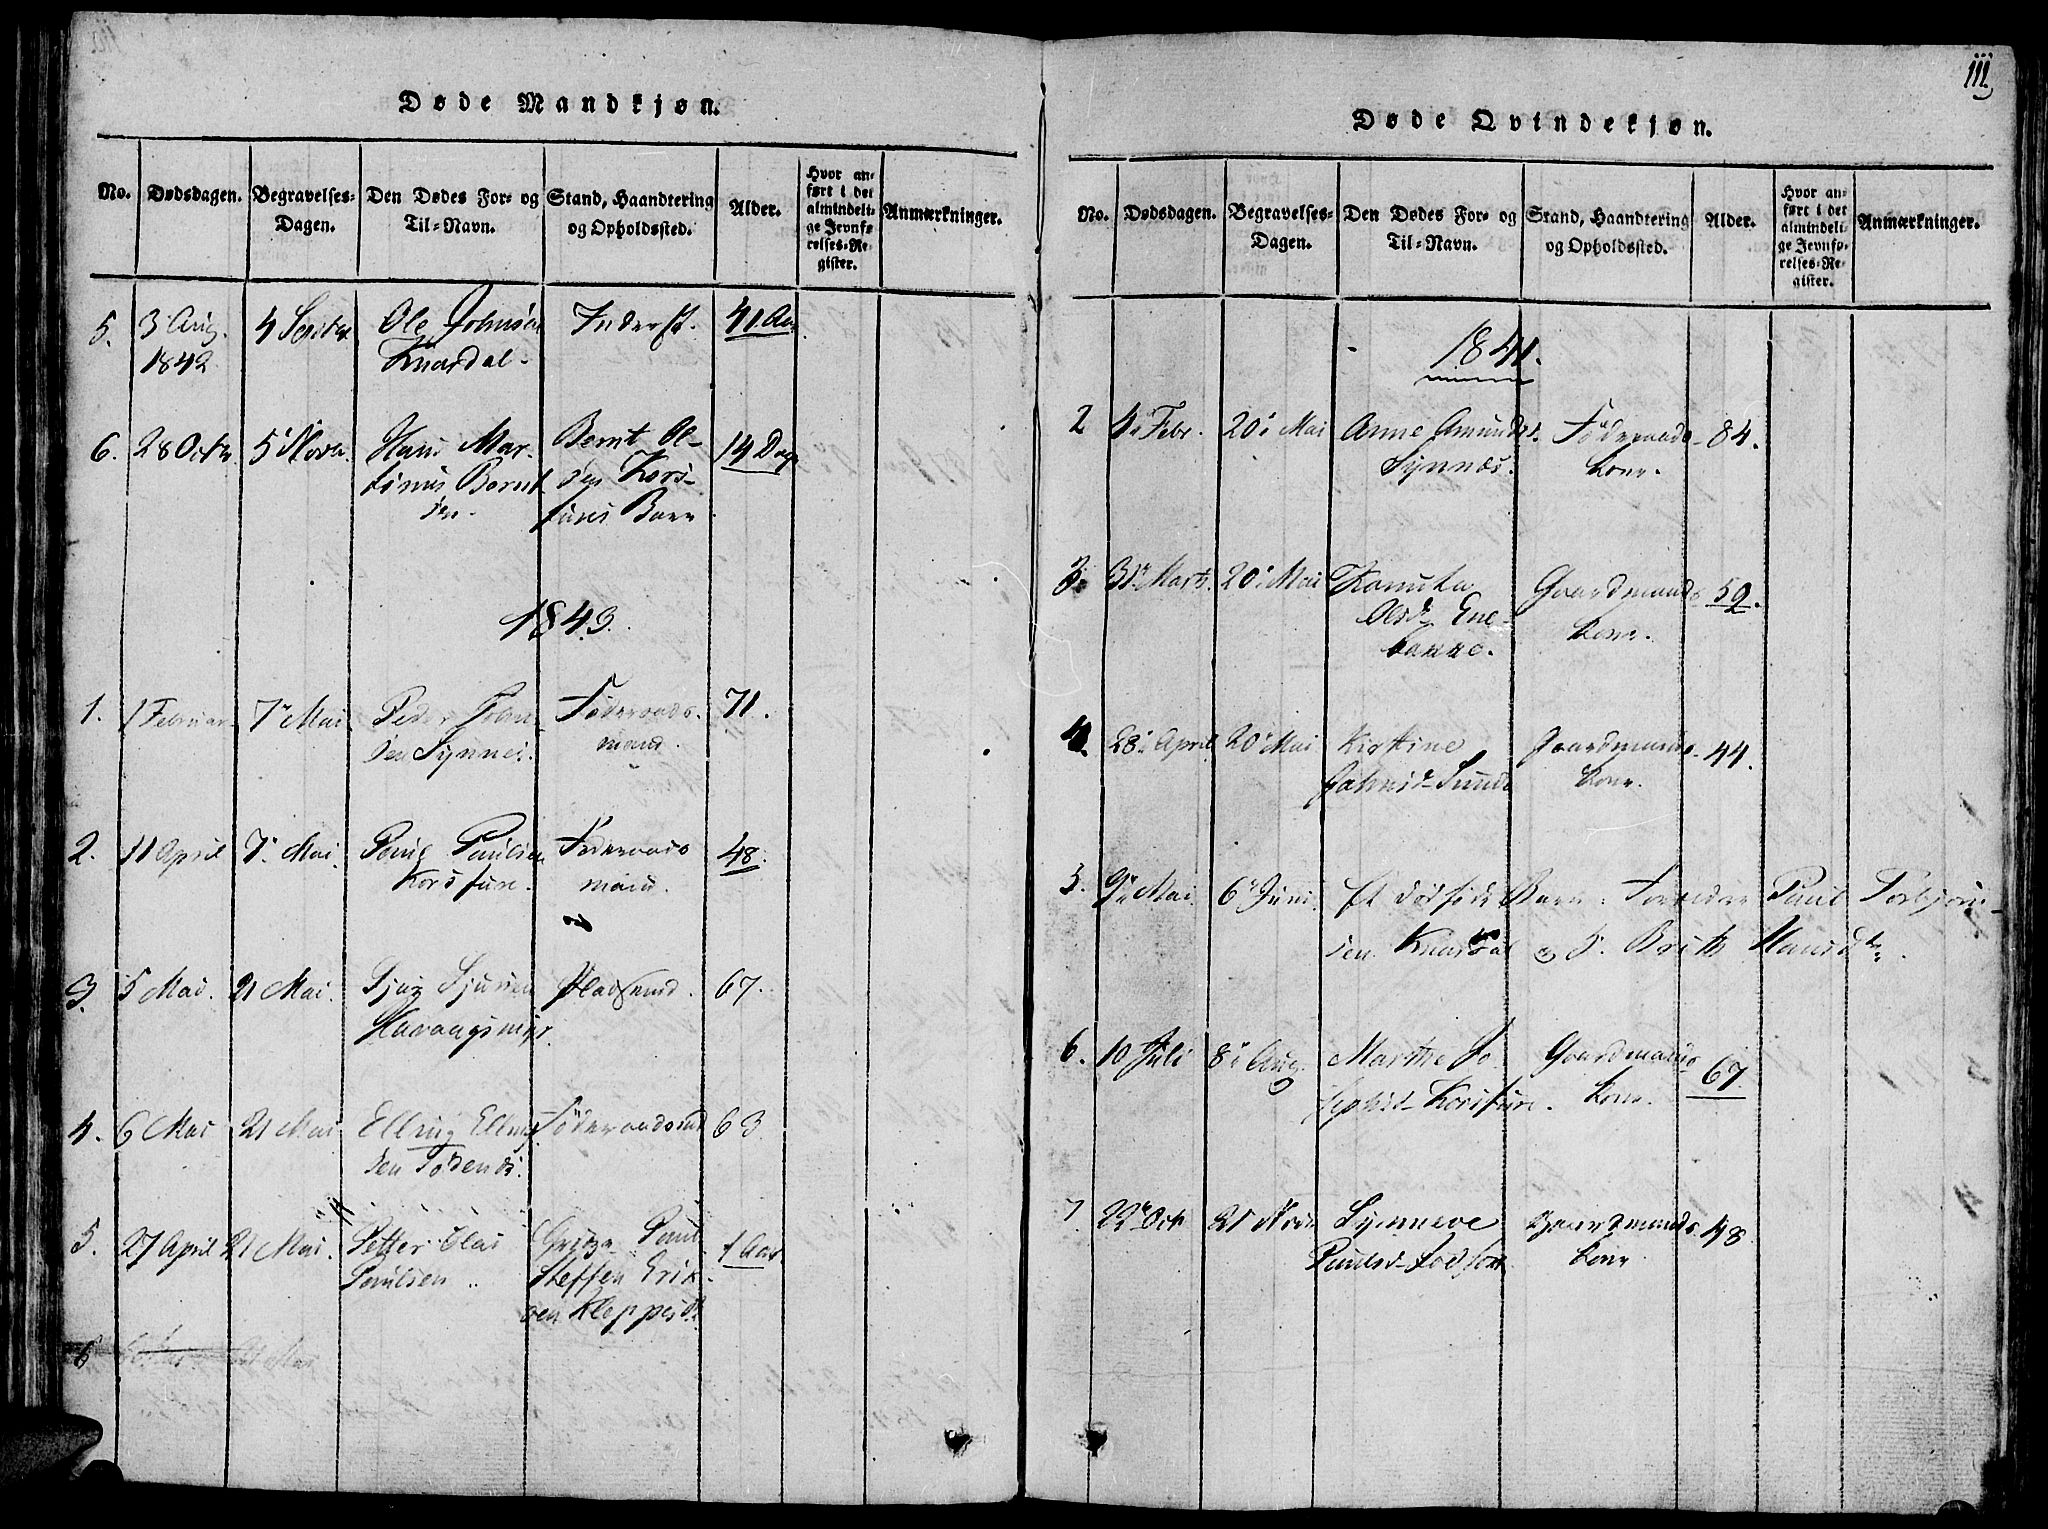 Døde Mandkjøn.
No. Dødsdagen. Begravelses-Dagen. Den Dødes For- og Til-Navn. Stand, Haandtering og Opholdssted. Alder. Hvor anført i det almindelige Jevnførelses-Register. Anmærkninger.
5. 3 Aug. 4 Septbr Ole Johnsen Inderst. 41 Aar
1842 Knardal.
6. 28 Octbr. 5 Novbr. Hans Mar- Bernt Ol- 14 Dage
tinus Bernt- sen Kors-
sen. fures Barn
1843.
1. 1 Februar 7 Mai Peder John- Föderaads- 71.
sen Synnes. mand.
2. 11 April 7. Mai. Poul Poulsen Föderaads 48.
Korsfure. mand.
3. 5 Mai. 21 Mai. Sjur Sjursen Pladsemd. 67.
4. 6 Mai 21 Mai Elling Elling- Föderaadsmd 63
sen
5. 27 April 21 Mai. Petter Olai 1 Aar
Poulsen Steffen Erik-
sen
6
111.
Døde Qvindekjøn.
No. Dødsdagen. Begravelses-Dagen. Den Dødes For- og Til-Navn. Stand, Haandtering og Opholdssted. Alder. Hvor anført i det almindelige Jevnførelses-Register. Anmærkninger.
1841.
2 4 Febr. 20 Mai Anne Amundsd. Föderaads- 84.
Synnes. kone.
3. 31 Marts. 20 Mai Gaardmands 59.
Olsd. Ene- kone.
bakke.
4. 28 April 20 Mai Kirstine Gaardmands- 44.
Johnsd. Sunde kone.
5. 9 Mai. 6 Juni. Et dødfødt Barn. Forældre Paul Torbjörn-
sen Knardal og Brith Hansdtr.
6. 10 Juli 8 Aug. Marthe Jo- Gaardmands 67.
sephsd. Korsfure. kone.
7 22 Oct. 21 Novbr Synneve Gaardmands 48.
Paulsd. kone